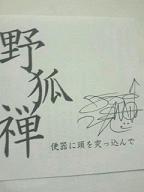 野狐禅
便器に頭を突っ込んで